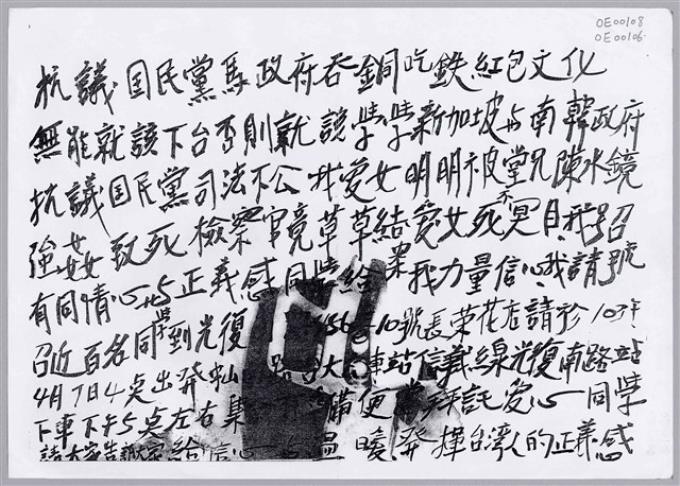 OE00108
OE00106
抗議国民黨馬政府吞銅吃鉄紅包文化
無能就該下台否則就說学学新加坡与南韓政府
抗議国民黨司法不公我愛女明明被堂兄陳水鏡
強姦致死檢察官竟草草結案愛女死不冥目我招
有同情心与正義感同学給我力量信心我請號
召近百名同學到光復 56 10號長榮花店請於10
4月7日4点出発 站信義線光復南路站
下車下午5点左右集 備便當拜託愛心同学
請大家告訴大家給信心与温暖発揮台湾人的正義感